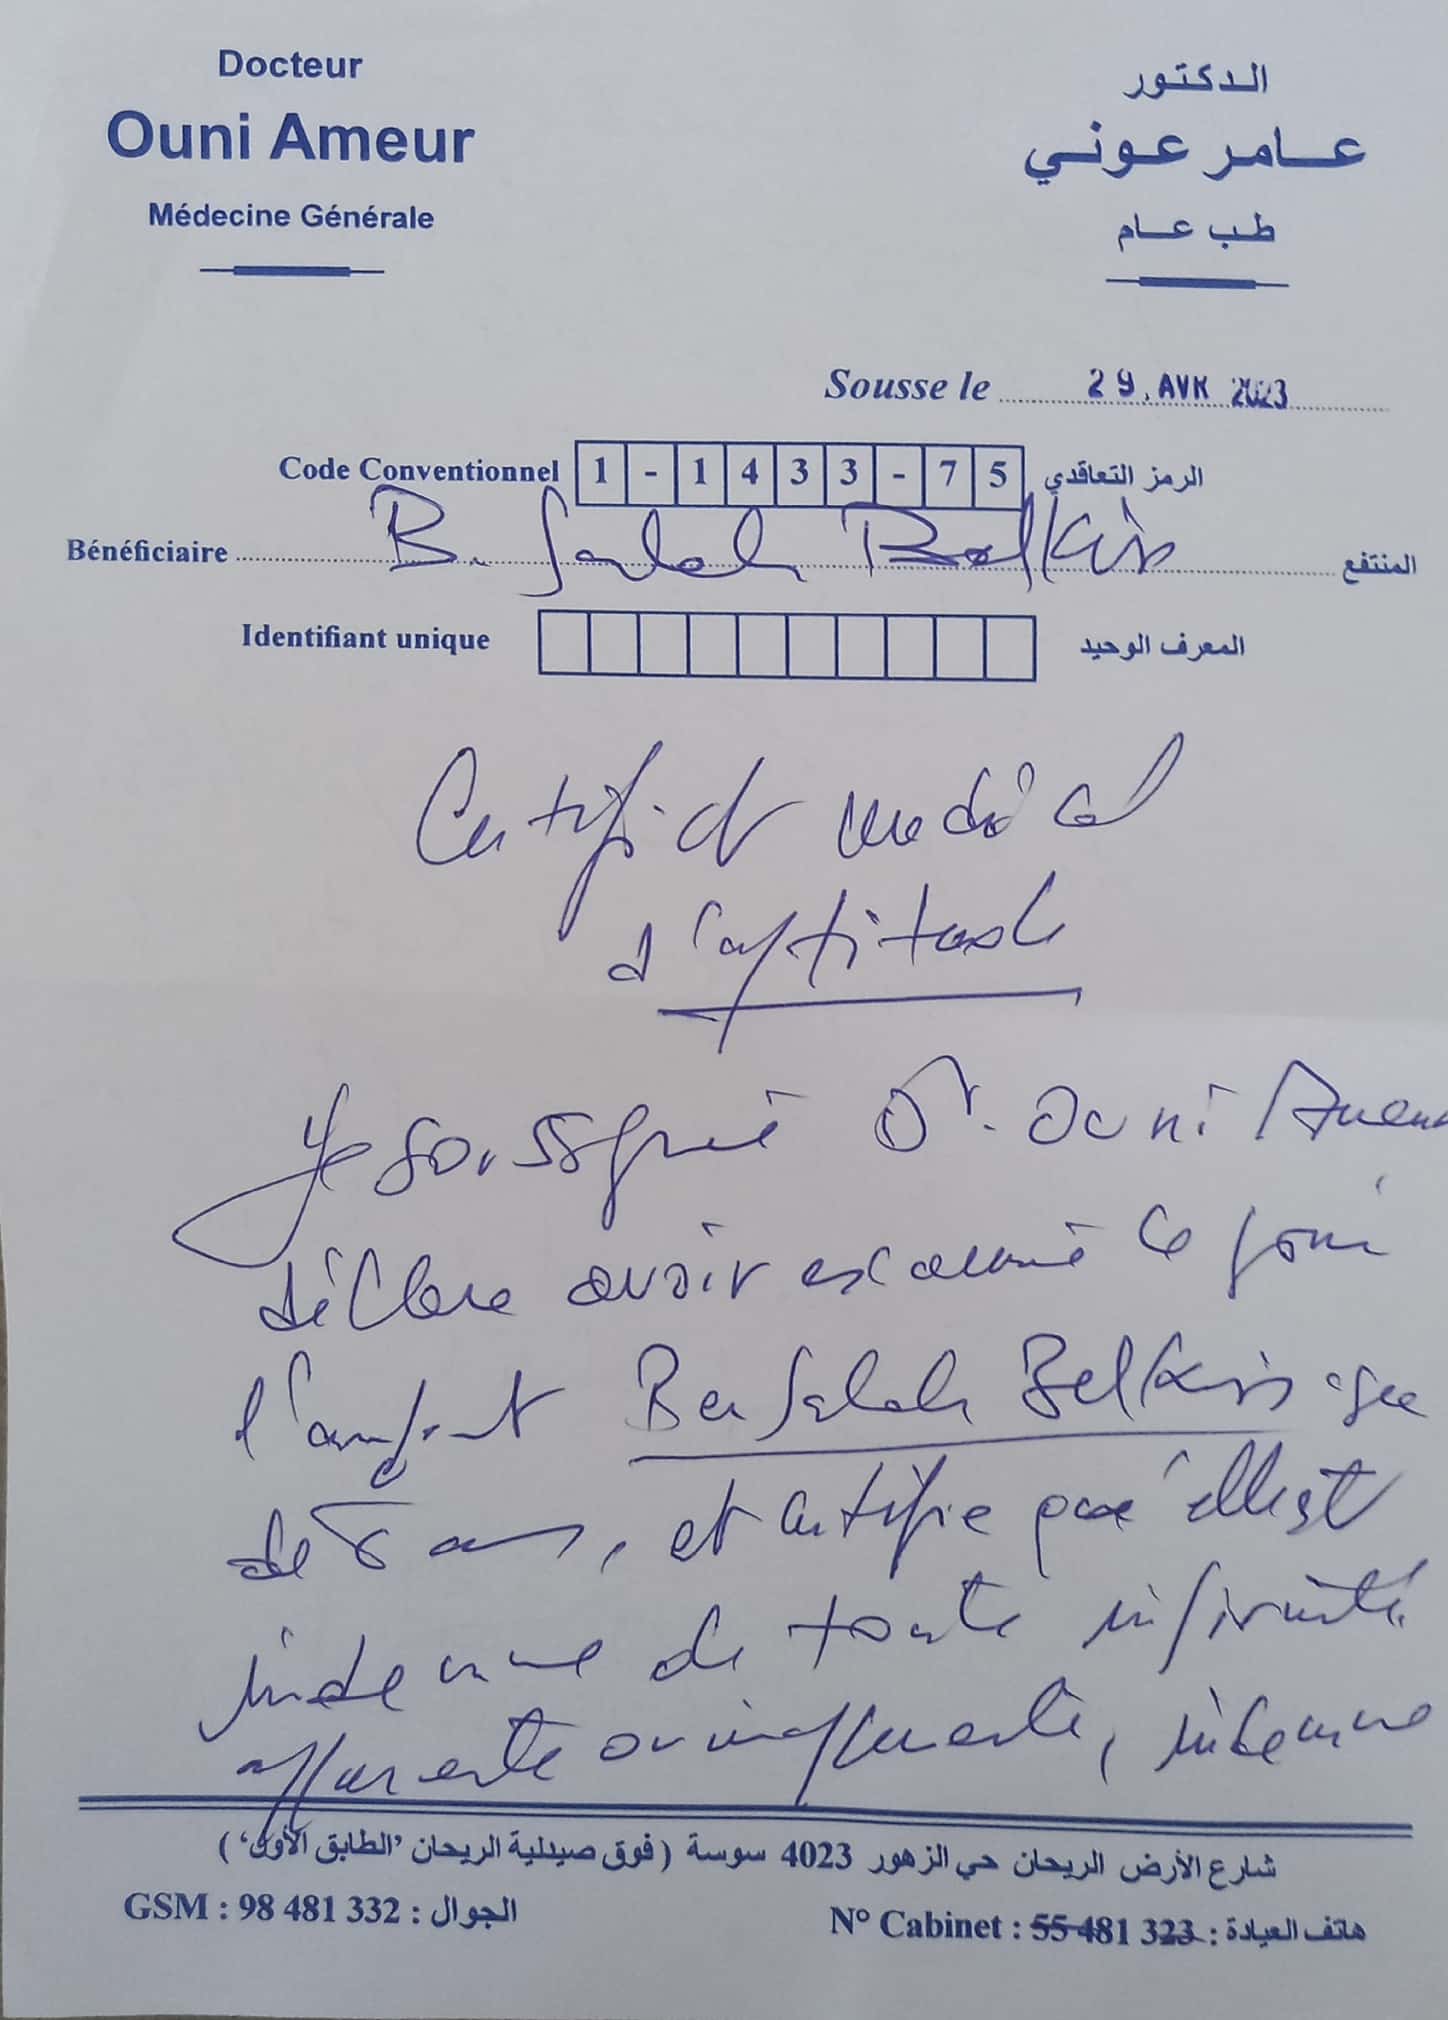 Docteur
Ouni Ameur
Médecine Générale
الدكتور
عامر عوني
طب عام
Sousse le 29. AVR 2023
Code Conventionnel 1-1433-75 الرمز التعاقدي
Bénéficiaire B. Salah Belkis المنتفع
Identifiant unique المعرف الوحيد
Certificat médical
d'aptitude
Je soussigné Dr. Ouni Ameur
déclare avoir examiné ce jour
l'enfant Ben Salah Belkis agée
de ans, et certifie que elle est
indemne de toute infirmité
apparente ou inapparente, indemne
شارع الأرض الريحان حي الزهور 4023 سوسة (فوق صيدلية الريحان 'الطابق الأول')
GSM : 98 481 332 : الجوال
N° Cabinet : 55 481 323 : هاتف العيادة